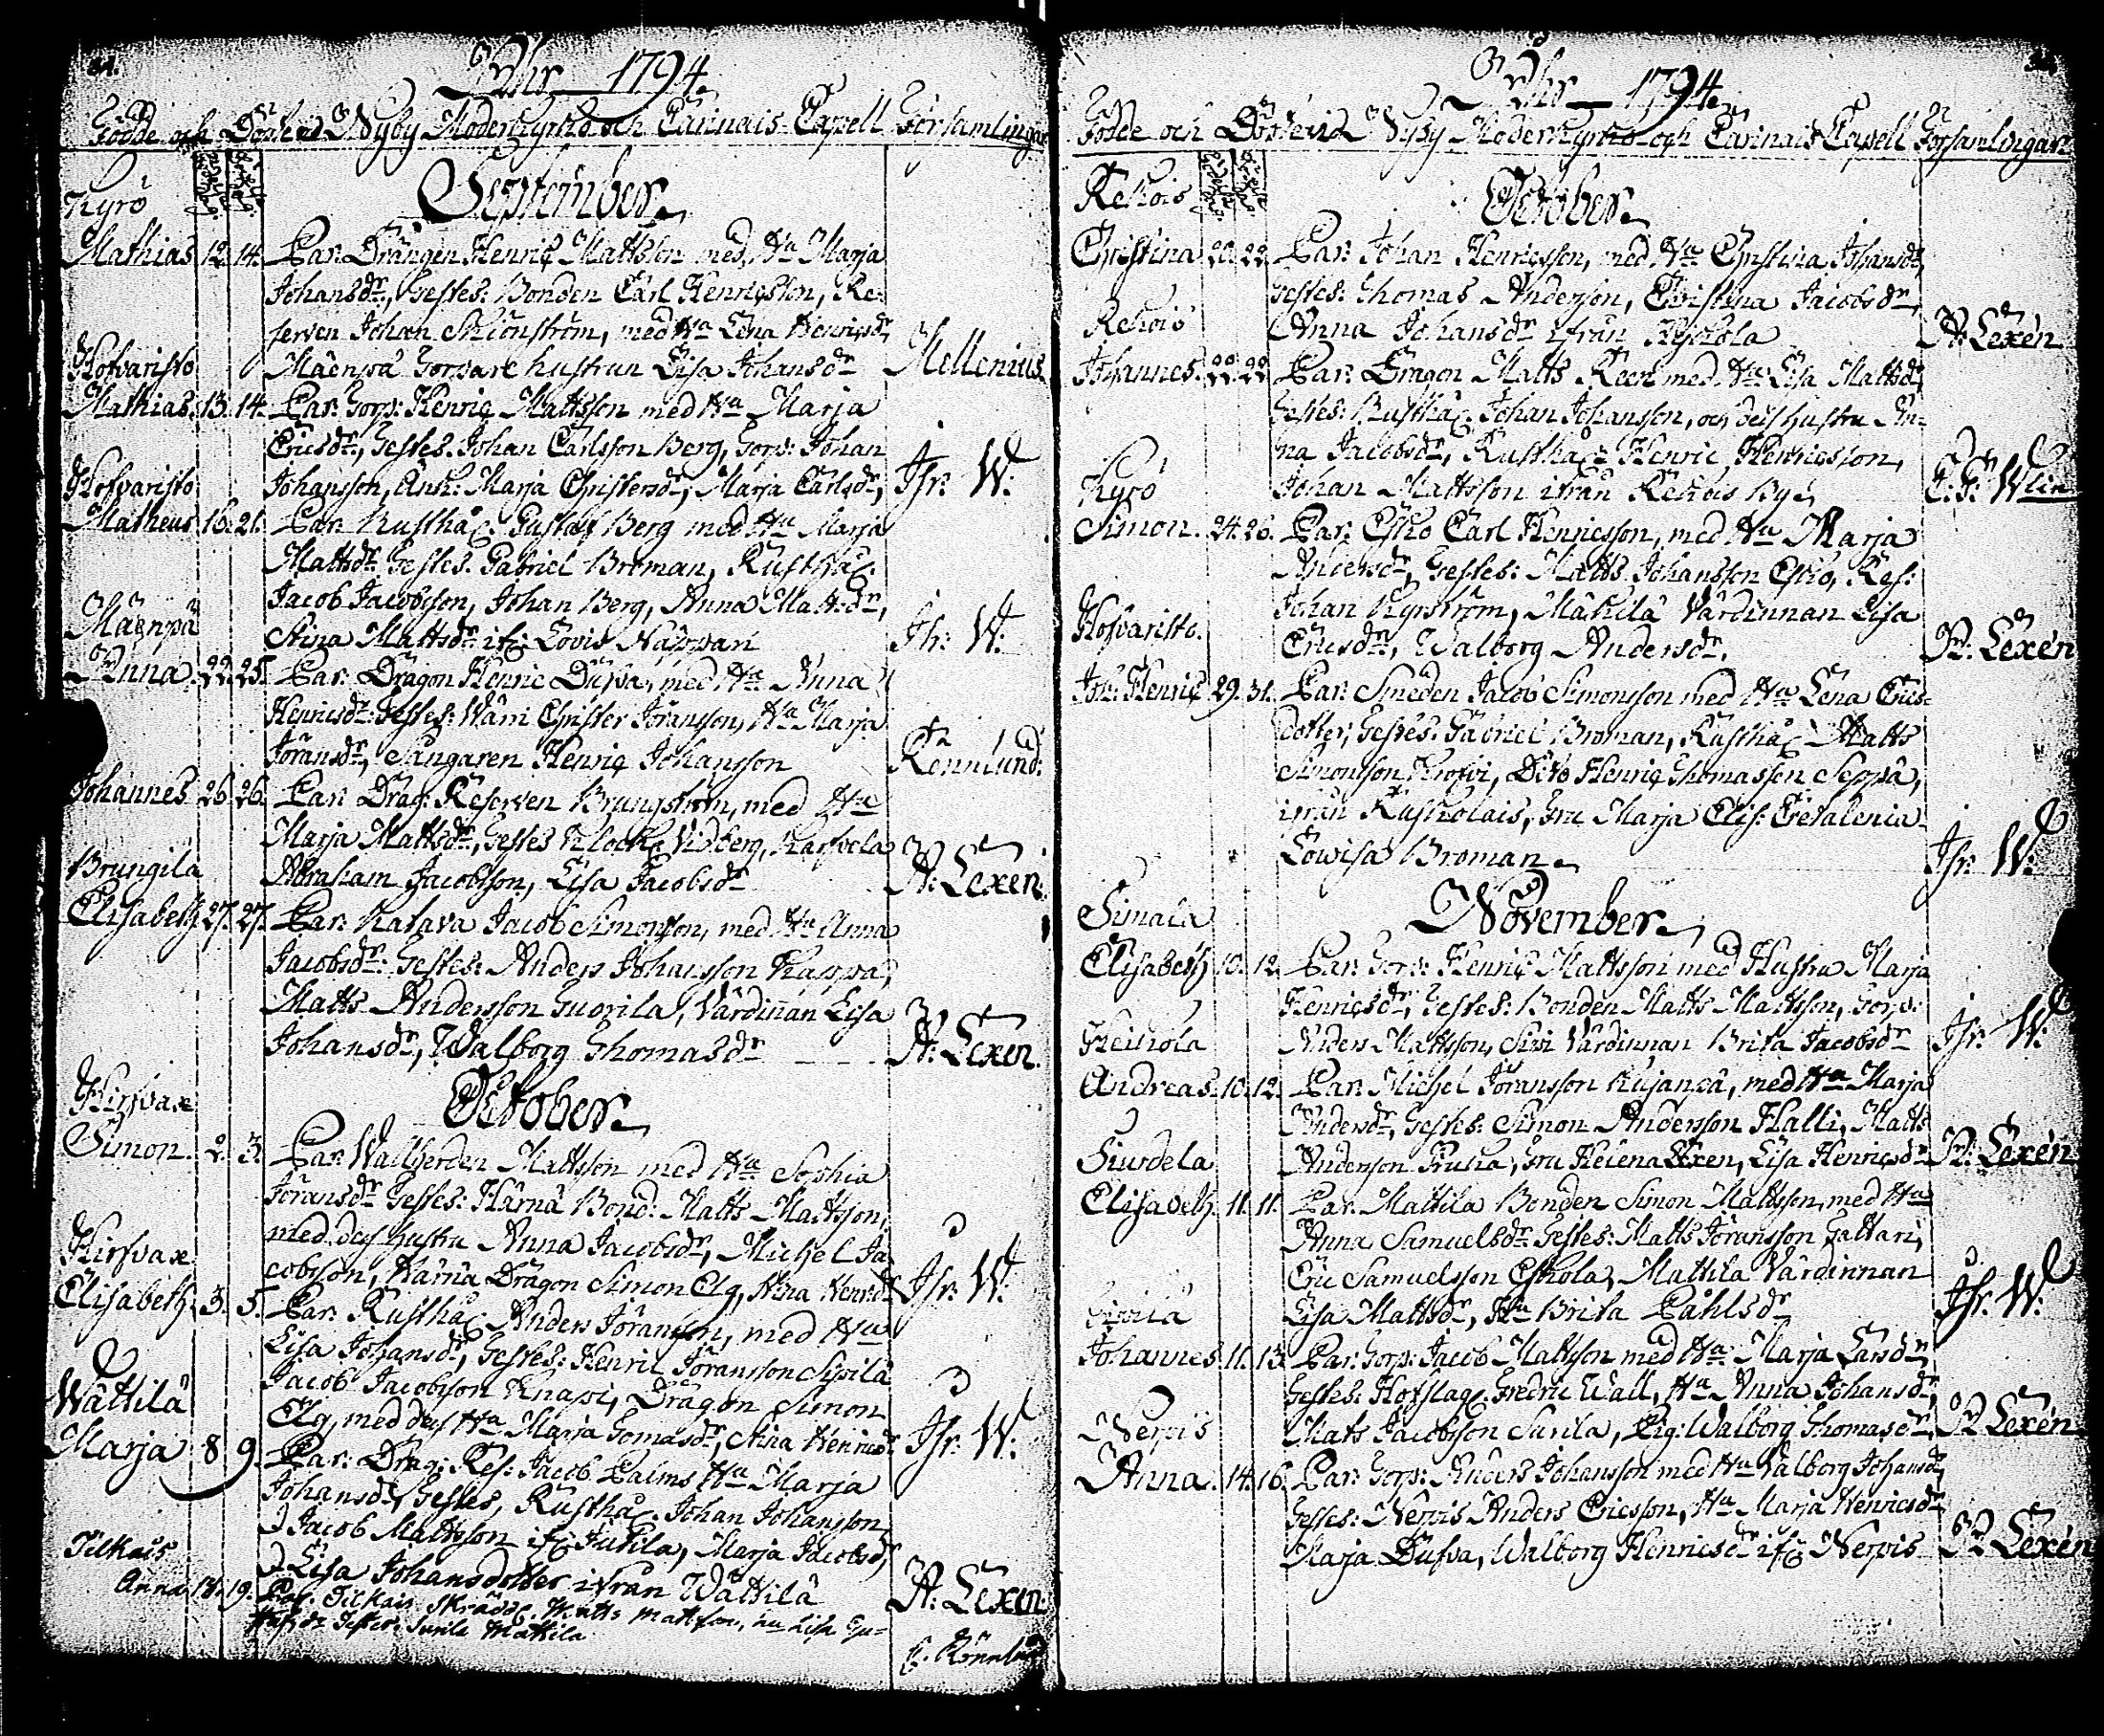 Åhr 1794.
Födde och Döpte vid Nyby Moderkyrko och Carinais Capell Församlingar
September
Kyrö
Mathias 12. 14. Par: Drängen Henric Mattsson med Hu Marja
Johansdr, Testes: Bonden Carl Henricsson, Re-
serven Johan, med Hu Lena Henricsdr
Mäenpä Torpare hustrun Lisa Johansdr Mellenius
Hofvaristo
Mathias. 13. 14. Par: Torp: Henric Mattsson med Hu Marja
Ericsdr, Testes. Johan Carlsson Berg, Torp: Johan
Johansson, Änk: Marja Christersdr, Marja Carlsdr, Jfr: W:
Hofvaristo
Matheus 16. 21. Par: Rusthåll: Gustaf Berg med Hu Marja
Mattsdr Testes. Gabriel Broman, Rusthåll:
Jacob Jacobsson, Johan Berg, Anna Mattsdr,
Stina Mattsdr if: Lovis Näppari Jfr: W:
Mäenpä
Anna. 22. 25. Par: Dragon Henric Dufva, med Hu Anna
Henricsdr: Testes: Christer Jöransson, Hu Marja
Jöransdr, Sångaren Henric Johansson Rönnlund:
Johannes 26. 26. Par: Drag: Reserven, med Hu
Marja Mattsdr, Testes Klock: Vidberg, Karfvela
Abraham Jacobsson, Lisa Jacobsdr A: Lexén.
Brungila
Elisabeth. 27. 27. Par: Ratava Jacob Simonsson, med Hu Anna
Jacobsdr: Testes: Anders Johansson Kappa,
Matts Andersson Tuorila, Värdinnan Lisa
Johansdr, Walborg Thomasdr A: Lexén.
October
Hirfvax
Simon. 2. 3. Par: Wallherden Mattsson med Hu Sophia
Jöransdr Testes: Härmä Bond: Matts Mattsson,
med dess hustru Anna Jacobsdr, Michel Ja-
cobsson, Härmä Dragon Simon Elg, Stina Henricsdr Jfr: W:
Hirfvax
Elisabeth. 3. 5. Par: Rusthåll: Anders Jöransson, med Hu
Lisa Johansdr, Testes: Henric Jöransson Sipilä
Jacob Jacobsson Knapi, Dragon Simon
Elg, med dess Hu Marja Tomasdr, Stina Henricsdr Jfr: W:
Wättilä
Marja 8 9. Par: Drag: Res: Jacob Palms Hu Marja
Johansdr, Testes, Rusthåll: Johan Johansson
Jacob Mattsson if: Jutila, Marja Jacobsdr,
Lisa Johansdotter ifrån Wättilä A: Lexén
Tilkais
Anna 18. 19. Par. Tilkais Skrädd: Matts Mattsson, hu Lisa
Testes: Surila Mattila
C. Rönnlund
Åhr 1794.
Födde och Döpte vid Nyby Moderkyrko och Carinais Capell Församlingar
October
Rekois
Christina 20. 22. Par: Johan Henricsson, med Hu Christina Johansdr,
Testes: Thomas Andersson, Christina Jacobsdr,
Anna Johansdr ifrån A: Lexén
Rekois
Johannes. 22. 22. Par: Dragon Matts Reen med Hu: Lisa Mattsdr,
Testes: Rusthåll: Johan Johansson, och dess hustru An-
na Jacobsdr, Rusthåll: Henric Henricsson,
Johan Mattsson ifrån Rekois By C: F: Wlin
Kyrö
Simon. 24. 26. Par: Esko Carl Henricsson, med Hu Marja
Andersdr, Testes: Matts Johansson Esko, Res:
Johan Kyrström, Mäkilä Värdinnan Lisa
Ericsdr, Walborg Andersdr. A: Lexén
Hofvaristo.
Joh: Henric 29. 31. Par: Smeden Jacob Simonsson med Hu Lena Erics-
dotter, Testes: Gabriel Broman, Rusthåll: Matts
Simonsson Knofvi, Dito Henric Thomasson Seppä,
ifrån, Fru Marja Elis:
Lowisa Broman Jfr: W:
November
Simala
Elisabeth 10. 12. Par: Torp: Henric Mattsson med Hustru Marja
Henricsdr, Testes: Bonden Matts Mattsson, Torp:
Anders Mattsson, Värdinnan Brita Jacobsdr Jfr: W:
Heikola
Andreas. 10. 12. Par: Michel Jöransson Kujanpä, med Hu Marja
Andersdr, Testes: Simon Andersson Halli, Matts
Andersson, Fru Helena Lexen, Lisa Henricsdr A: Lexén
Tiurdela
Elisabeth. 11. 11. Par. Mattila Bonden Simon Mattsson, med Hu
Anna Samuelsdr Testes: Matts Jöransson Tattari,
Eric Samuelsson Eskola, Mattila Värdinnan
Lisa Mattsdr, Hu Brita Påhlsdr Jfr: W:
Johannes 11. 13. Par: Torp: Jacob Mattsson med Hu: Marja Larsdr,
Testes: Hofslag: Fredric Wall, Hu Anna Johansdr,
Mats Jacobsson Surila, Pig: Walborg Thomasdr A: Lexén
Nerpis
Anna. 14. 16. Par: Torp: Anders Johansson med Hu Walborg Johansdr
Testes: Nerpis Anders Ericsson, Hu Marja Henricsdr
Marja Dufva, Walborg Henricsdr if: Nerpis A: Lexén